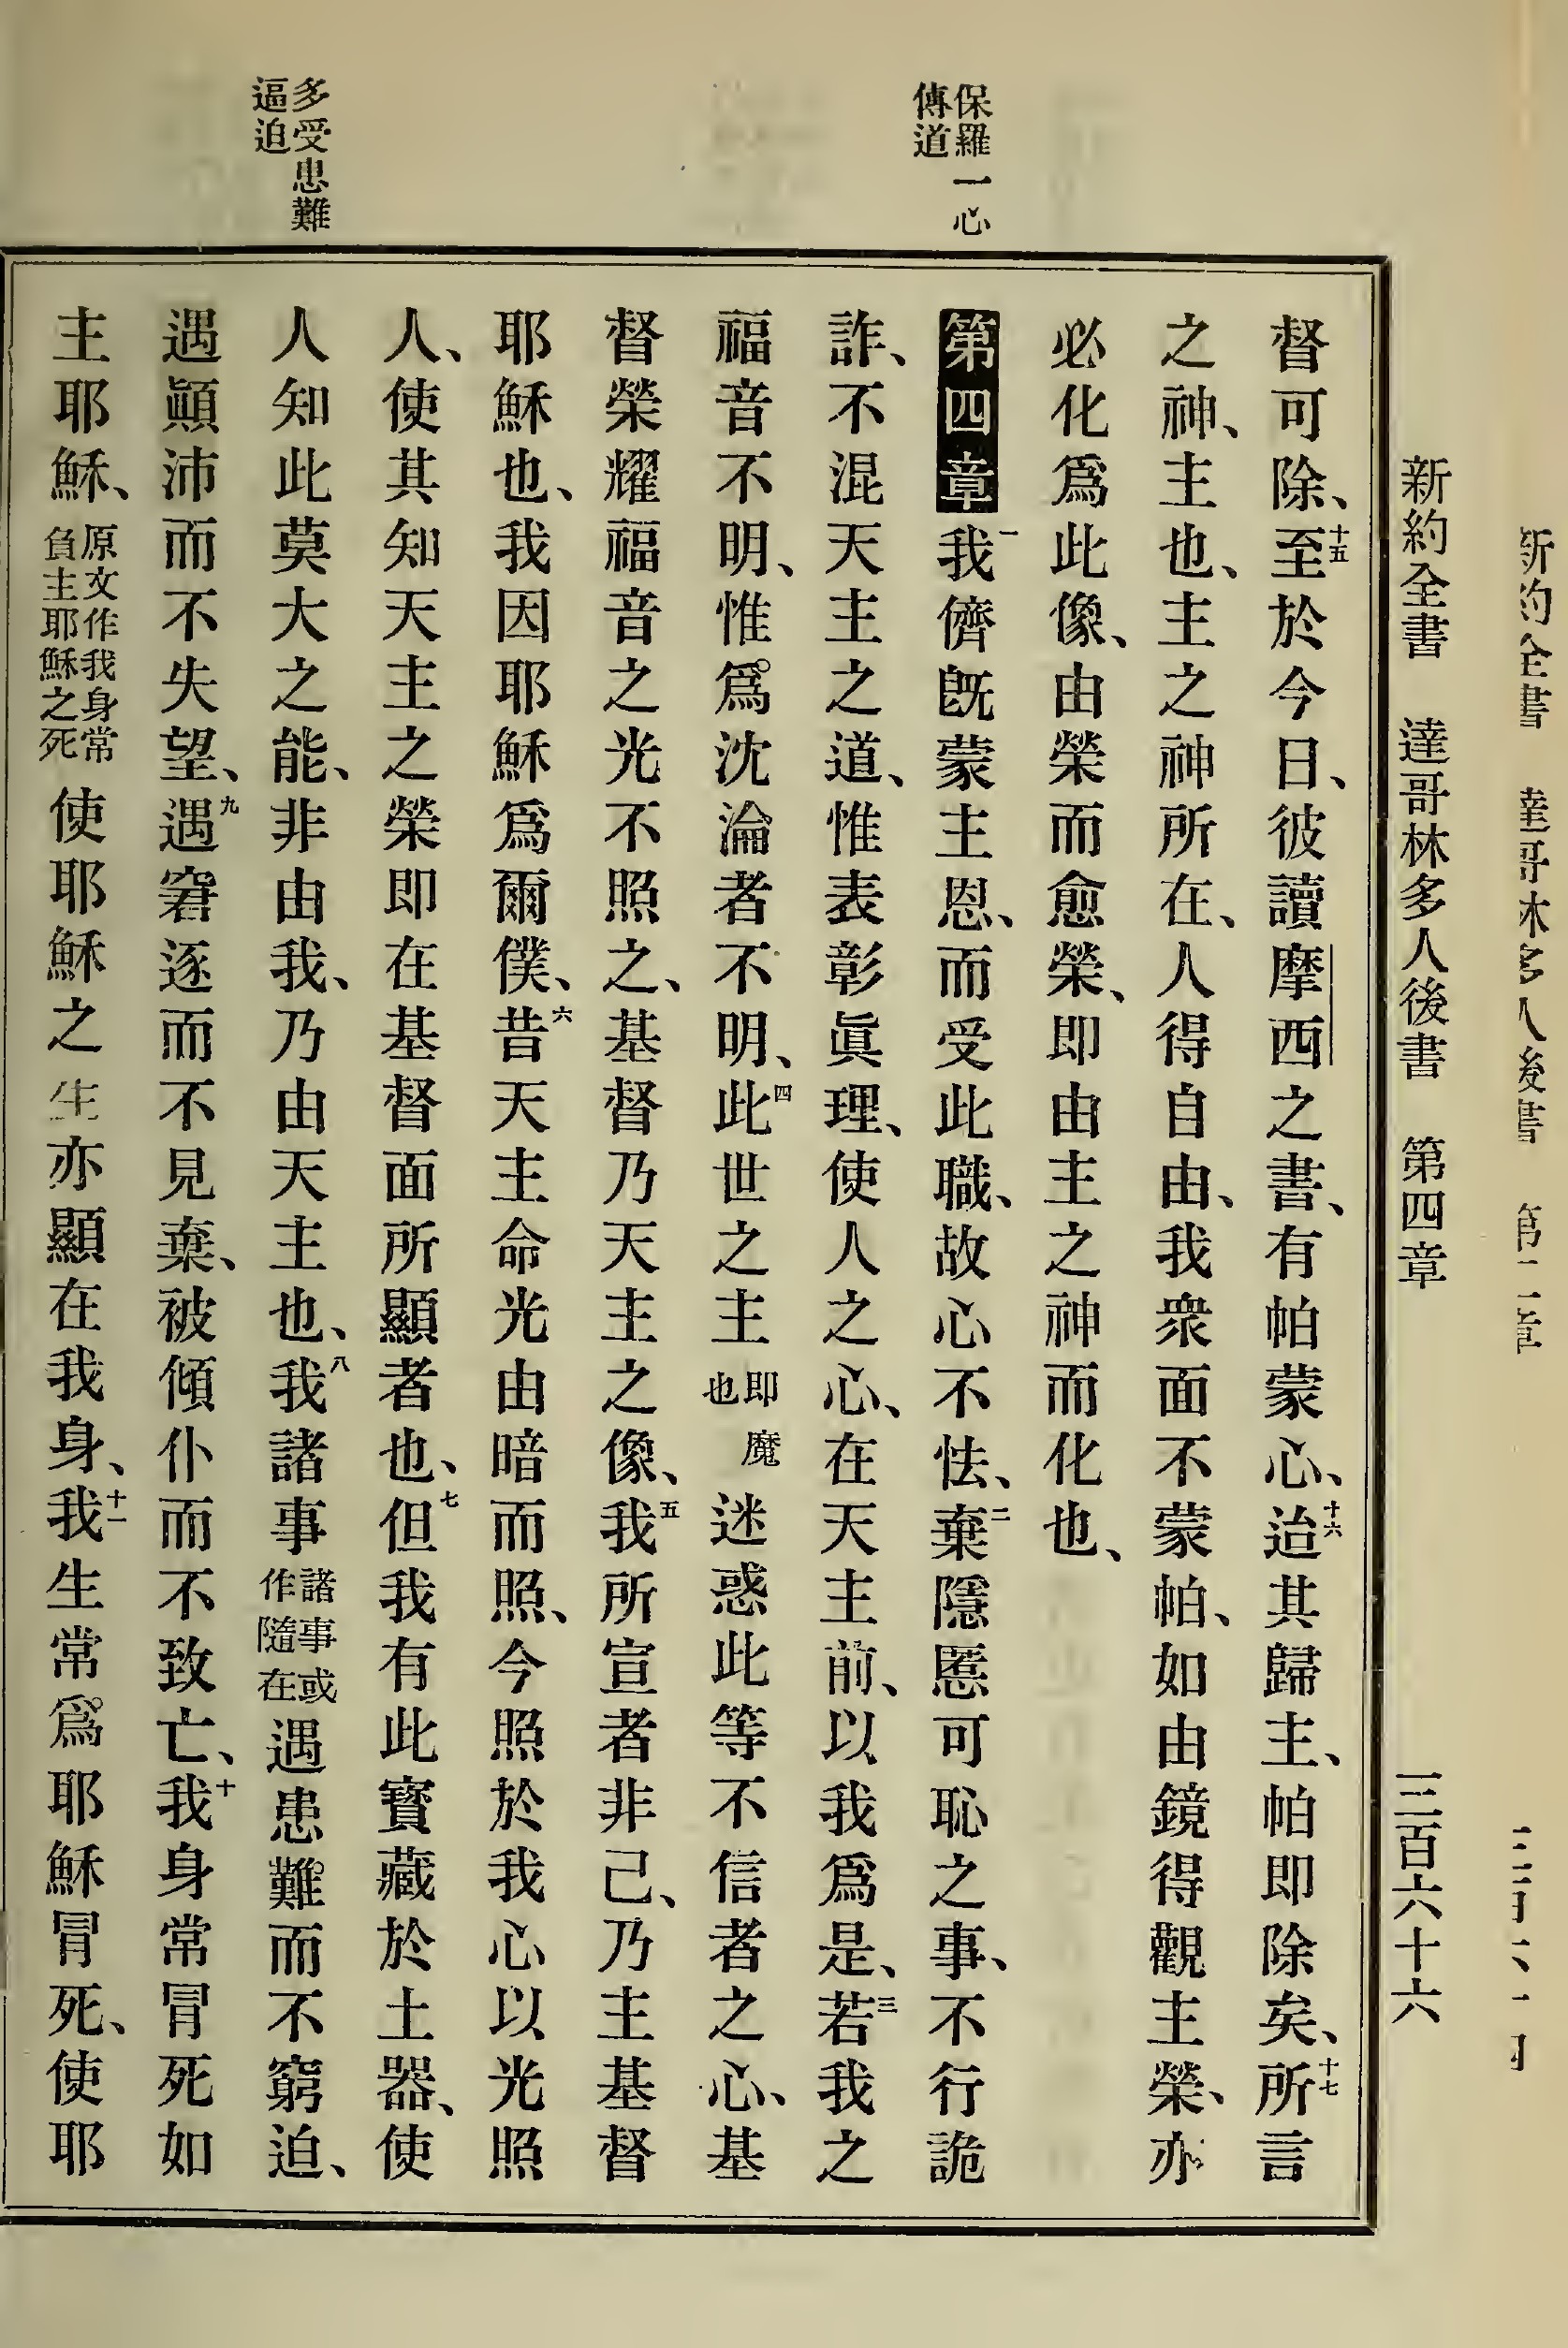 新約全書 達哥林多人後書 第四章 三百六十六
保羅一心
傳道
多受患難
逼迫
督可除、十五至於今日、彼讀摩西之書、有帕蒙心、十六迨其歸主、帕即除矣、十七所言
之神、主也、主之神所在、人得自由、我衆面不蒙帕、如由鏡得觀主榮、亦
必化爲此像、由榮而愈榮、即由主之神而化也、
第四章一我儕既蒙主恩、而受此職、故心不怯、二棄隱慝可恥之事、不行詭
詐、不混天主之道、惟表彰眞理、使人之心、在天主前、以我爲是、三若我之
福音不明、惟爲沈淪者不明、四此世之主即魔也迷惑此等不信者之心、基
督榮耀福音之光不照之、基督乃天主之像、五我所宣者非己、乃主基督
耶穌也、我因耶穌爲爾僕、六昔天主命光由暗而照、今照於我心以光照
人、使其知天主之榮即在基督面所顯者也、七但我有此寶藏於土器、使
人知此莫大之能、非由我、乃由天主也、八我諸事諸事或作隨在遇患難而不窮迫、
遇顚沛而不失望、九遇窘逐而不見棄、被傾仆而不致亡、十我身常冒死如
主耶穌、原文作我身常負主耶穌之死使耶穌之生亦顯在我身、十一我生常爲耶穌冒死、使耶